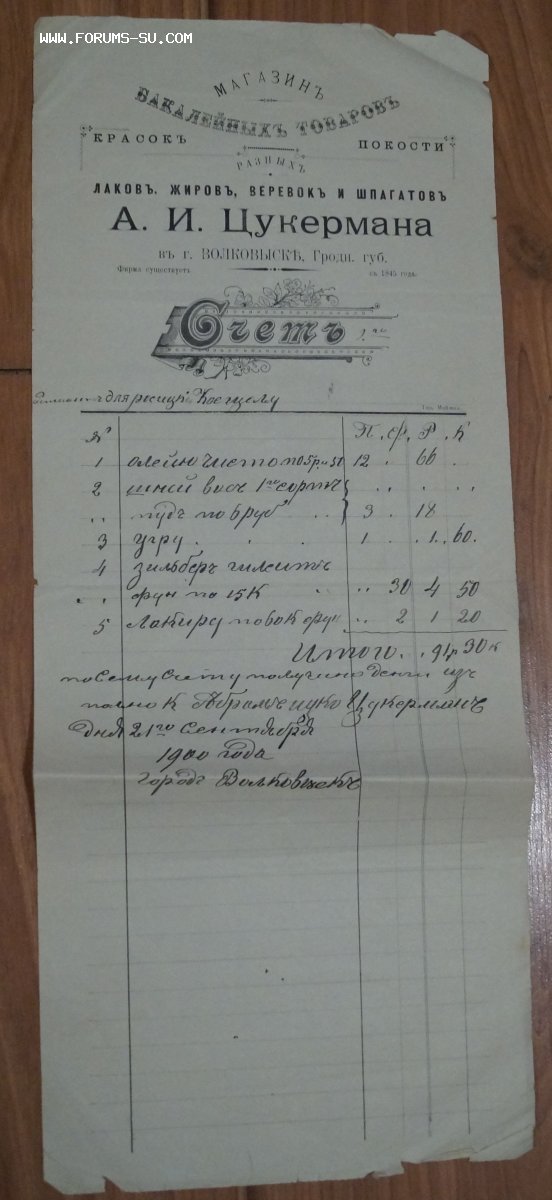 WWW.FORUMS-SU.COM
МАГАЗИНЪ
БАКАЛЕЙНЫХЪ ТОВАРОВЪ
КРАСОКЪ ПОКОСТИ
РАЗНЫХЪ
ЛАКОВЪ, ЖИРОВЪ, ВЕРЕВОКЪ И ШПАГАТОВЪ
А. И. Цукермана
въ г. ВОЛКОВЫСКѢ, Гродн. губ.
Фирма существуетъ съ 1845 года.
Счетъ
для росицкі Костцелу
№ П. ф. Р. К
1 олейно чисто по 5 р. 50 12 . 66 .
2 вось 1го сорта
" пудъ по 6 руб 3 . 18 .
3 угру 1 . 1. 60.
4 зильберъ
" фун по 15 К " 30 4 50
5 Лакиру по 60к фун " 2 1 20
Итого . 91р 30к
по сему счету получино денги
Абрамъ Ицко Цукерманъ
дня 21го Сентября
1900 года
городъ Волковискъ